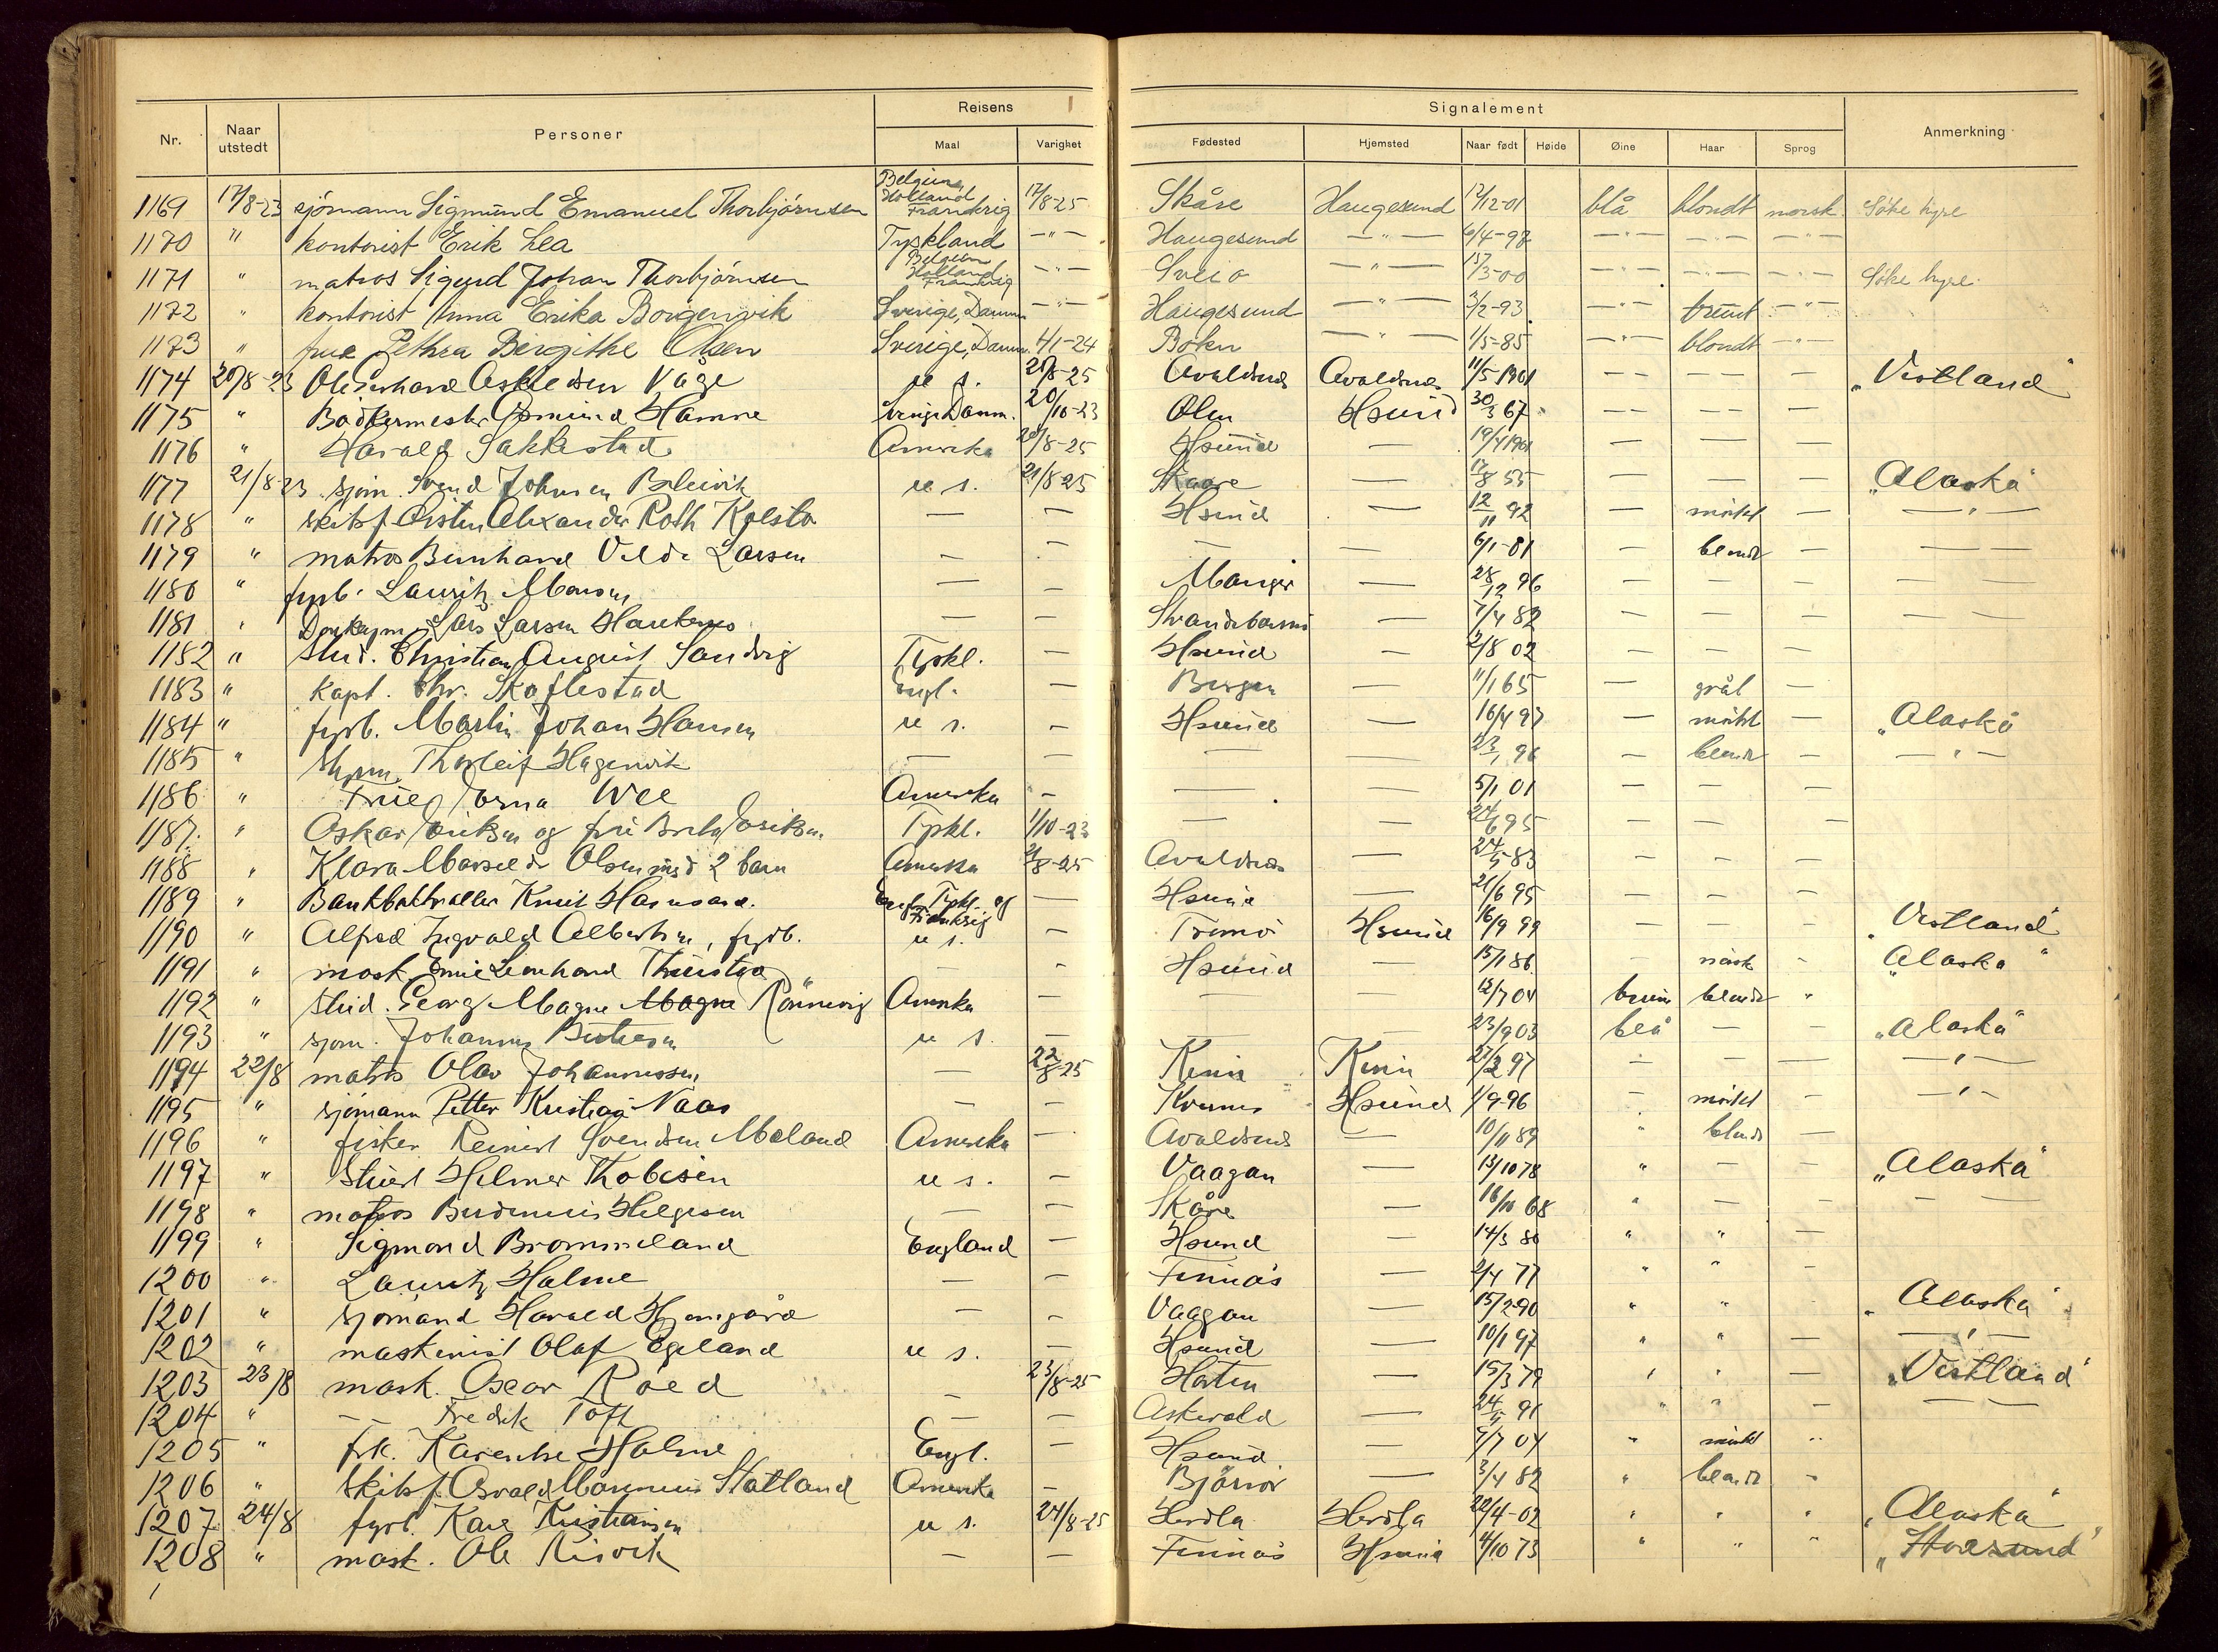 Reisens
Signalement
Nr. Naar utstedt Personer Maal Varighet Fødested Hjemsted Naar født Høide Øine Haar Sprog Anmerkning
1169 17/8-23 sjömann Sigmund Emanuel Thorbjörnsen Belgien, Holland Frankrig 17/8-25 Skåre Haugesund 12/12-01 blå blondt norsk Söke hyre
1170 " kontorist Erik Lea Tyskland —"— Haugesund —"— 6/4-97 —"— —"— —"—
1171 " matros Sigurd Johan Thorbjörnsen Belgien Holland Frankrig —"— Sveio —"— 15/3-00 —"— —"— —"— Söke hyre
1172 " kontorist Anna Erika Borgenvik Sverige, Danm —"— Haugesund —"— 3/2-93 —"— brunt —"—
1173 " frue Pethra Bergithe Olsen Sverige, Danm. 4/1-24 Bokn —"— 1/5-85 —"— blondt —"—
1174 20/8-23 Ole Johane Våge u s. 20/8-25 Avaldsnes Avaldsnes 11/5 1901 — — — — "Vestland"
1175 " Bödkermester Hamre Sverige Danm. 20/10-23 Ølen Hsund 30/3 67 — — — —
1176 " Harald Sakkestad Amerika 20/8-25 Hsund — 19/4 1901 — — —
1177 21/8-23 sjöm. Svend Johnsen Bleivik u s. 21/8-25 Skaare — 17/8 55 — — — "Alaska"
1178 " skibsf Alexander Roth Kolstø — — Hsund — 12/11 92 — mörkt — —"—
1179 " matros Bernhard Larsen — — — — 6/1-81 — blondt — — —
1180 " fyrb. Lauritz Monsen — — Manger — 28/12 96 — — — —
1181 " Donkeym. Lars Larsen — — Strandebarm — 7/4 82 — — — —
1182 " Stud. Christian August Sandvig Tyskl. — Hsund — 2/8 02 — — —
1183 " Kapt. Chr. Skoflestad Engl. — Bergen — 11/1 65 — grål —
1184 " fyrb. Martin Johan Hansen u s. — Hsund — 16/4 97 — mörkt — "Alaska"
1185 " Thorleif Hagenvik — — — — 23/1 96 — blondt — —"—
1186 " Frue Jorna Wee Amerika — — — 5/1 01 — — —
1187 " Oskar Eriksen og fru Eriksen Tyskl. 1/10-23 — — 24/6 95 — — —
1188 " Klara Olsen med 2 barn Amerika 21/8-25 Avaldsnes — 24/5-83 — — —
1189 " Knut Engl. Tyskl. og Frankrig — Hsund — 21/6 95 — — —
1190 " Alfred Ingvald Albertsen, fyrb. u s. — Tromsø Hsund 16/9 99 — — — "Vestland"
1191 " mask. Leonhard — — Hsund — 15/1 86 — mörk - "Alaska"
1192 " Stud. Georg Magne Magne Rönnevig Amerika — — — 12/7 04 brun blondt "
1193 " sjöm. Johannes u s. — — — 23/9 03 blå — — "Alaska"
1194 22/8 matros Olav Johannessen — 22/8-25 Kinn Kinn 27/2 97 — — — —"—
1195 " sjömann Petter Kristian Naas — — Kvernes Hsund 1/9-96 . mörkt — —"—
1196 " fisker Reinert Svendsen Meland Amerika — Avaldsnes — 10/11 89 " blondt —
1197 " Stuert Hilmer Thobesen u s. — Vaagan — 13/10 78 " — — "Alaska"
1198 " matros Berdinius Helgesen — — Skåre — 16/10 68 " — — — —
1199 " Sigmond Brommeland England — Hsund — 14/3 80 " " —
1200 " Lauritz Holme — — Finnås — 2/4 77 " " -
1201 " sjömand Harald Hjemgård — — Vaagan — 15/2-90 " " "Alaska"
1202 " maskinist Olaf Egeland u s. — Hsund — 10/1 97 " " — —"—
1203 23/8 mask. Oscar Röed — 23/8-25 Horten — 15/3 79 " " — "Vestland"
1204 " — — Fredrik Toft — — Askvold — 24/5 91 " " — — —
1205 " frk. Karenthe Holme Engl. — Hsund — 5/7 04 " mörkt "
1206 " Skibsf. Osvald Statland Amerika — Björnör — 3/4 82 " blondt -
1207 24/8 fyrb. Karl Kristiansen u s. 24/8-25 Herdla Herdla 22/4-02 " " " "Alaska"
1208 " mask. Ole Risvik — — Finnås Hsund 4/10 73 " " " "Storsund"